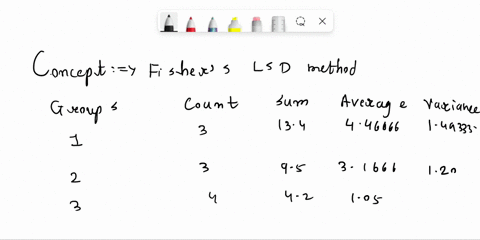 Concept:=> Fisher's LSD method
Groups Count Sum Average Variance
1 3 13.4 4.46666 1.49333-
2 3 9.5 3.1666 1.20
3 4 4.2 1.05